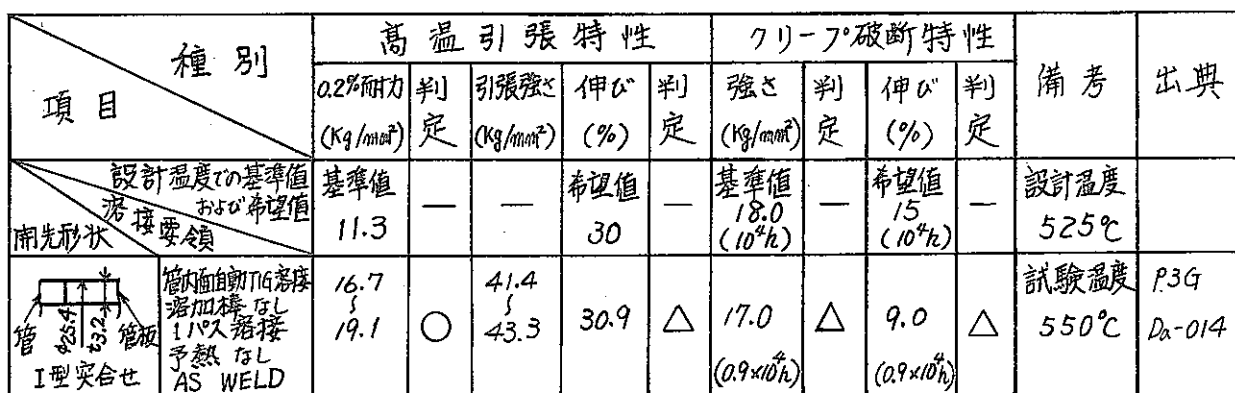 種別
項目
高温引張特性
クリープ破断特性
備考
出典
0.2%耐力
(Kg/mm²)
判定
引張強さ
(Kg/mm²)
伸び
(%)
判定
強さ
(Kg/mm²)
判定
伸び
(%)
判定
設計温度での基準値
および希望値
溶接要領
開先形状
基準値
11.3
—
—
希望値
30
—
基準値
18.0
(10⁴h)
—
希望値
15
(10⁴h)
—
設計温度
525℃
管
φ25.4
t3.2
管板
I型突合せ
管内面自動TIG溶接
溶加棒なし
1パス溶接
予熱なし
AS WELD
16.7
〜
19.1
○
41.4
〜
43.3
30.9
△
17.0
(0.9×10⁴h)
△
9.0
(0.9×10⁴h)
△
試験温度
550℃
P3G
Da-014